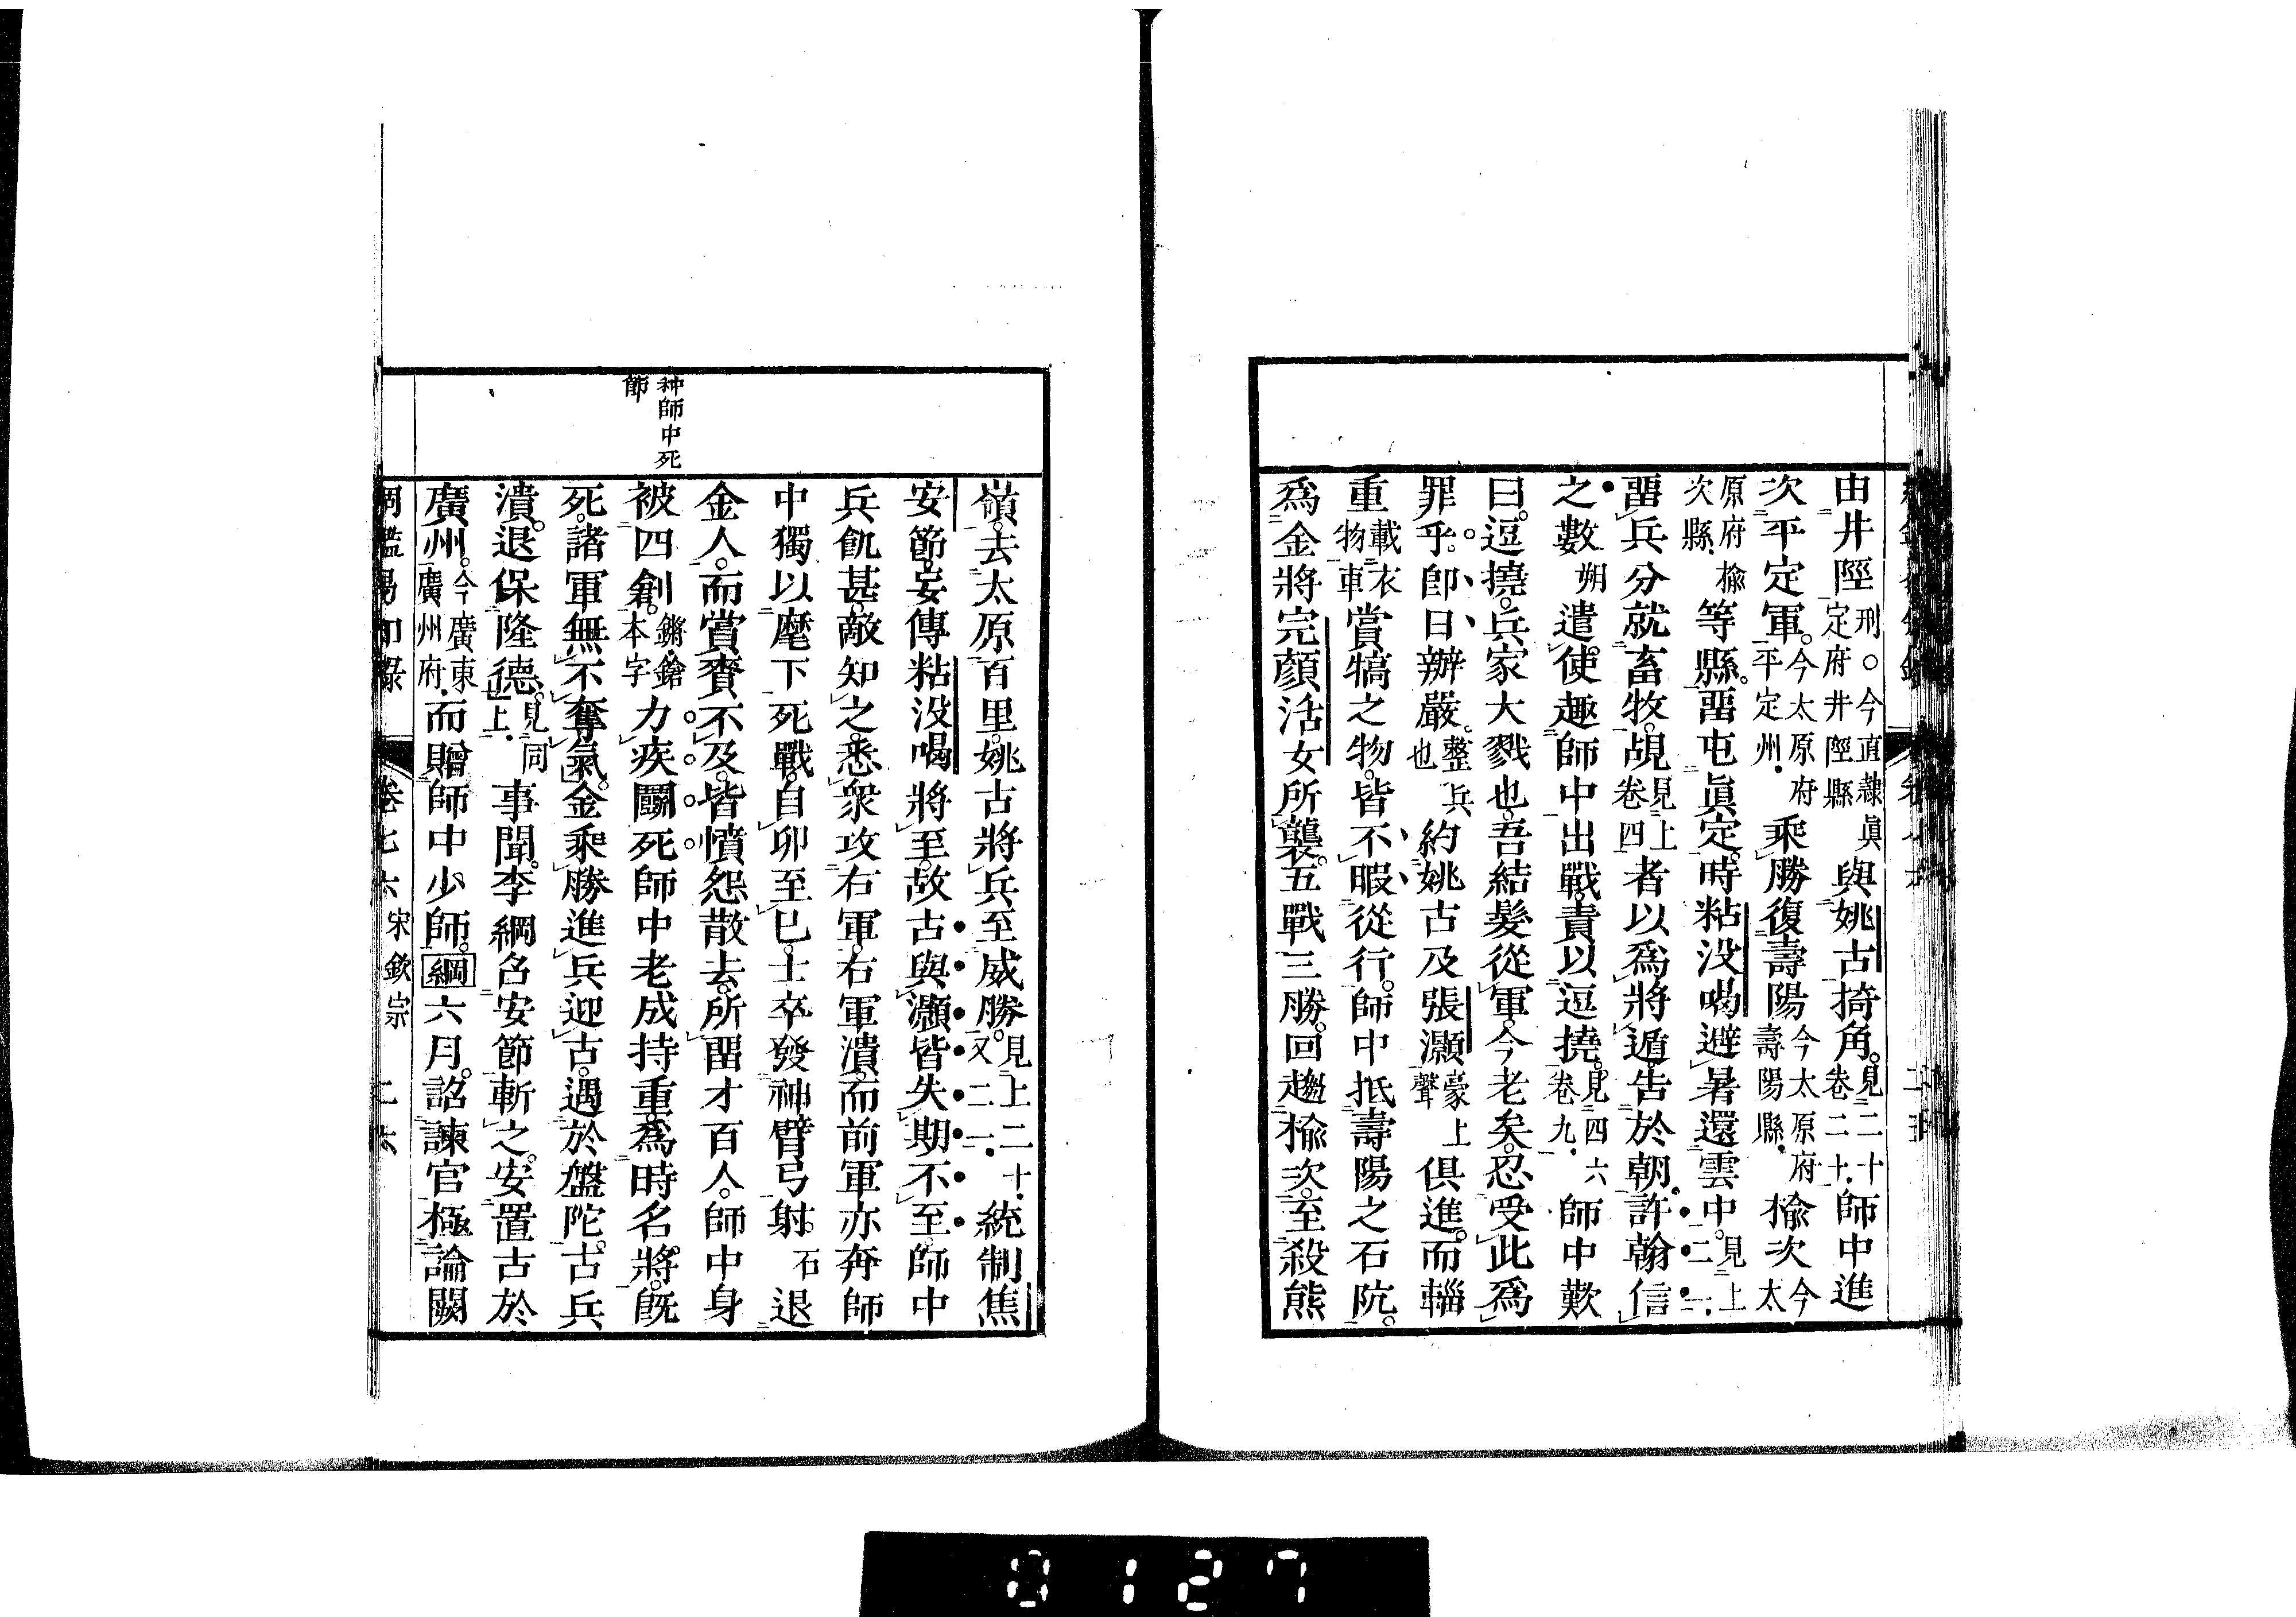 由井陘刑○今直隸眞定府井陘縣與姚古掎角。見二十卷二十。師中進
次平定軍。今太原府平定州。乘勝復壽陽今太原府壽陽縣。榆次今太
原府榆次縣。等縣。畱屯眞定。時粘没喝避暑還雲中。見上二二。
畱兵分就畜牧。覘見上卷四者以爲將遁。告於朝。許翰信
之數朔遣使趣師中出戰。責以逗撓。見四六卷九。師中歎
曰。逗撓。兵家大戮也。吾結髮從軍。今老矣。忍受此爲
罪乎。卽日辦嚴。整兵也約姚古及張灝豪上聲俱進。而輜
重載衣物車賞犒之物。皆不暇從行。師中抵壽陽之石阬。
爲金將完顏活女所襲。五戰三勝。回趨榆次。至殺熊
嶺。去太原百里。姚古將兵至威勝。見上二十又二一。統制焦
安節。妄傳粘没喝將至。故古與灝皆失期不至。師中
兵飢甚。敵知之。悉衆攻右軍。右軍潰。而前軍亦奔。師
中獨以麾下死戰。自卯至巳。士卒發神臂弓射石退
金人。而賞賚不及。皆憤怨散去。所畱才百人。師中身
被四創。鏘。鎗本字力疾鬬死師中老成持重。爲時名將。旣
死。諸軍無不奪氣。金乘勝進兵迎古。遇於盤陀。古兵
潰。退保隆德。見同上。事聞。李綱召安節斬之。安置古於
廣州。今廣東廣州府。而贈師中少師。綱六月。詔諫官極論闕
种師中死節
綱鑑易知錄 卷七六 宋欽宗 二六
0127